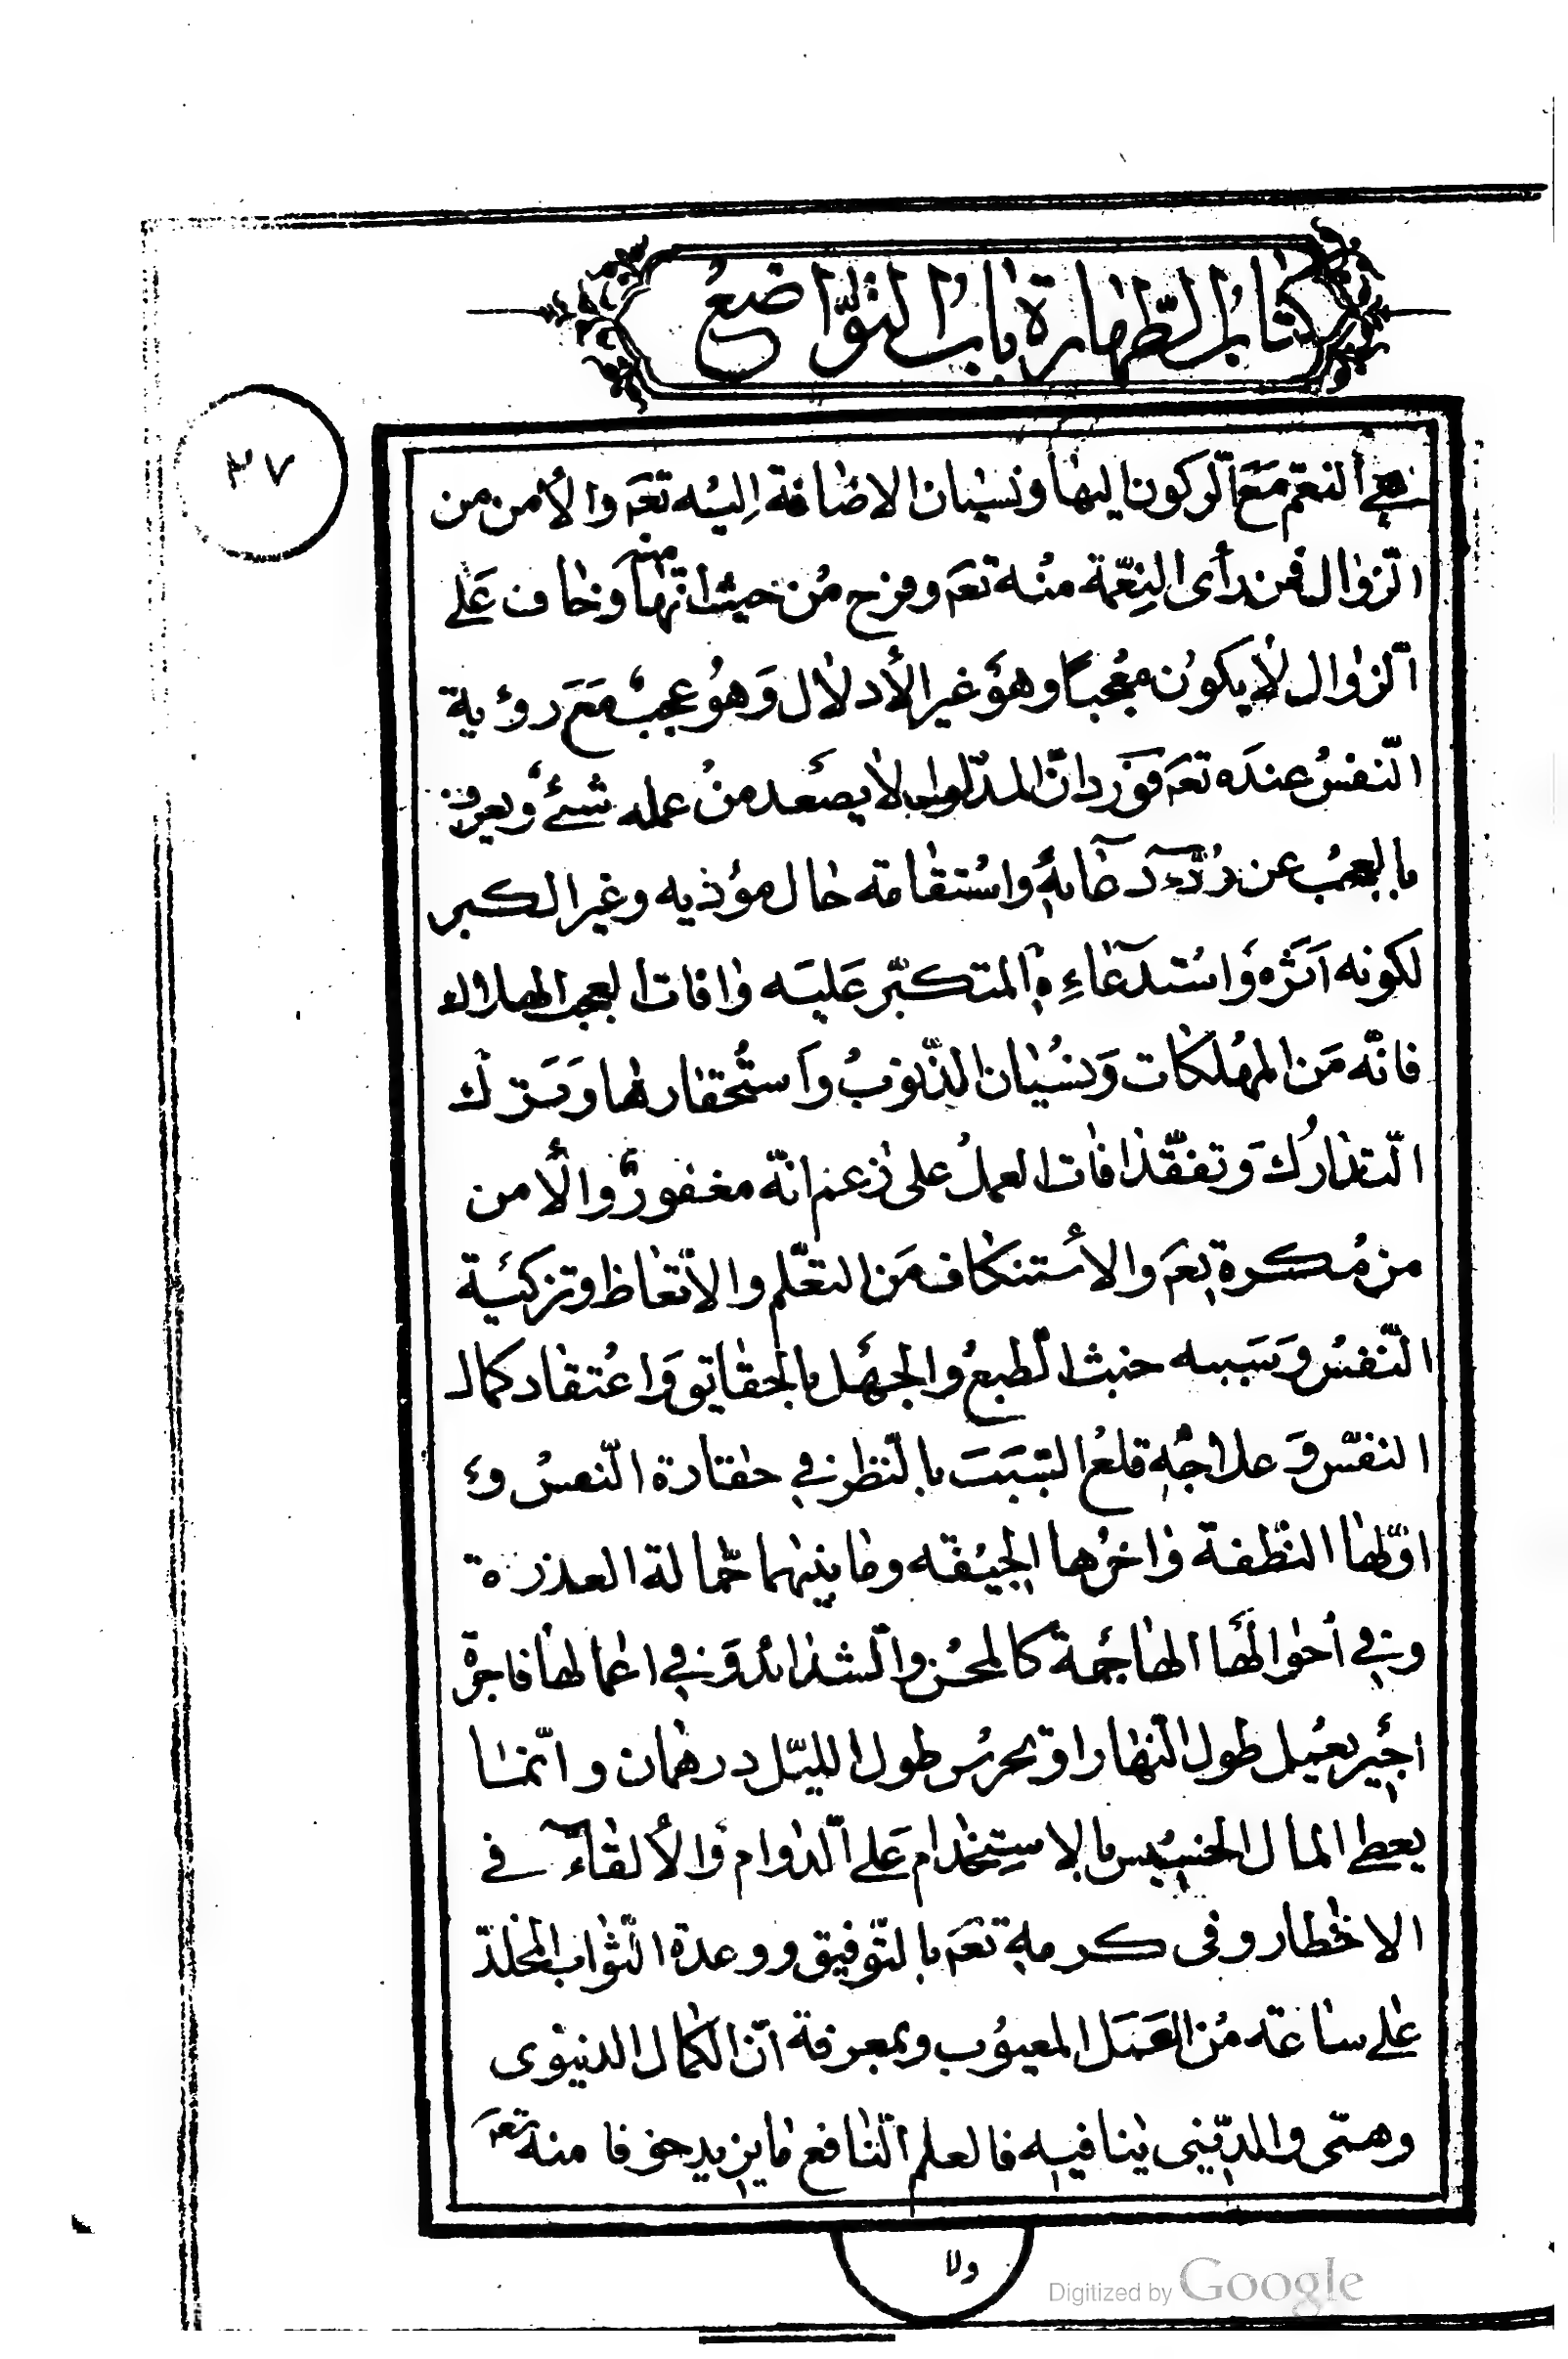 كتاب الطّهارة باب التّواضع
٣٧
النعم مع الركون اليها ونسيان الاضافة اليه تعه والأمن من
الزوال فمن رأى النعمة منه تعه وفرح من حيث انّها منه وخاف على
الزوال لا يكون معجبا وهو غير الأدلال وهو عجب مع رؤية
النّفس عنده تعه فورد انّ المدلّ لا يصعد من عمله شئ ويعرف
بالعجب عن ردّ دعائه واستقامة حال مؤذيه وغير الكبر
لكونه اثره واستدعائه المتكبّر عليه وافات العجب الهلاك
فانّه من المهلكات ونسيان الذّنوب واستحقارها وترك
التدارك وتفقّد افات العمل على زعم انّه مغفور والأمن
من مكره تعه والأستنكاف من التعلّم والاتّعاظ وتزكية
النّفس وسببه خبث الطبع والجهل بالحقايق واعتقاد كمال
النفس وعلاجه قلع السّبب بالنّظر في حقارة النّفس و
اوّلها النطفة واخرها الجيفة وما بينهما حمّالة العذرة
وفي احوالها الهاجمة كالمحن والشدائد وفي اعمالها فاجرة
اجير يعمل طول النّهار او يحرس طول الليل درهمان وانّما
يعطى المال الخسيس بالاستخدام على الدوام والألقاء في
الاخطار وفى كرمه تعه بالتّوفيق ووعدة الثّواب المخلّد
على ساعة من العمل المعيوب وبمعرفة انّ الكمال الدنيوى
وهمّى والدّينى ينافيه فالعلم النافع ما يزيد خوفا منه تعه
ولا
Digitized by Google